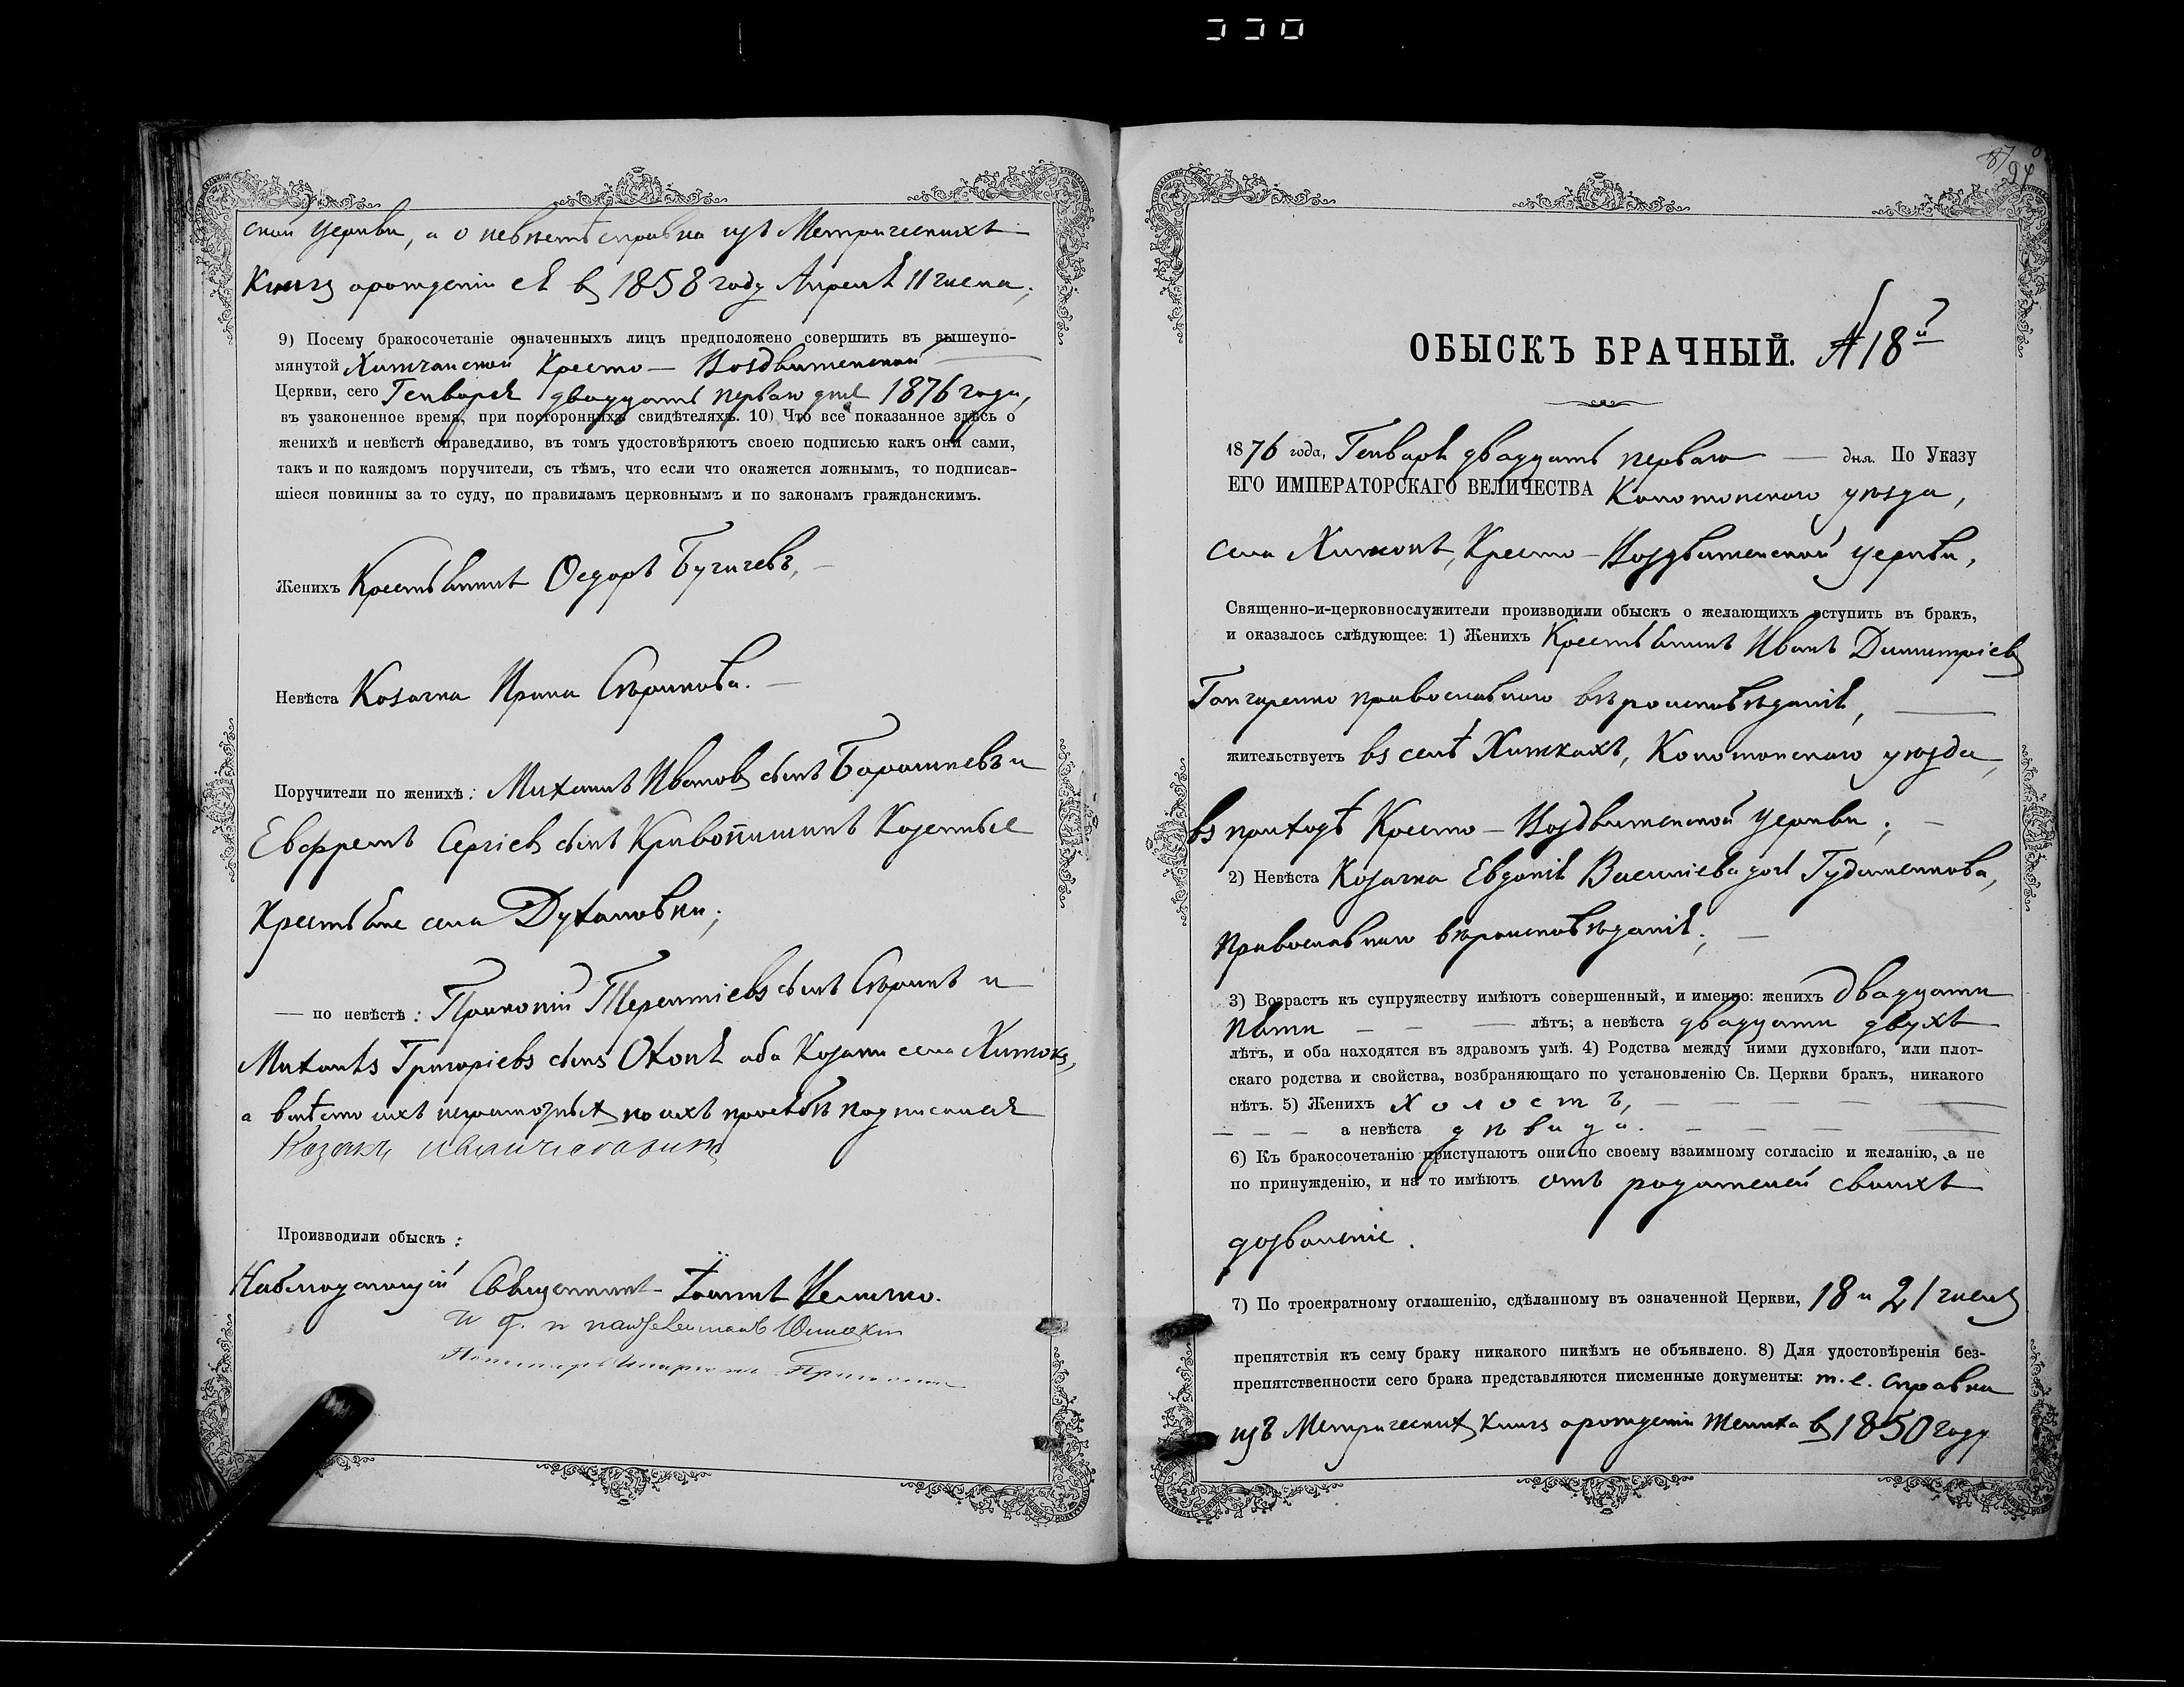 ской Церкви, а о невѣстѣ справка изъ Метрическихъ
Книгъ орожденіи ея въ 1858 году Апреля 11 числа;
9) Посему бракосочетаніе означенныхъ лицъ предположено совершить въ вышеупо-
мянутой Хижчанской Кресто-Воздвиженской
Церкви, сего Генваря двадцать перваго дня 1876 года,
въ узаконенное время, при постороннихъ свидѣтеляхъ. 10) Что все показанное здѣсь о
женихѣ и невѣстѣ справедливо, въ томъ удостовѣряютъ своею подписью какъ они сами,
такъ и по каждомъ поручители, съ тѣмъ, что если что окажется ложнымъ, то подписав-
шіеся повинны за то суду, по правиламъ церковнымъ и по законамъ гражданскимъ.
Женихъ Крестьянинъ Ѳедоръ
Невѣста Козачка Ирина
Поручители по женихѣ: Михаилъ Ивановъ сынъ и
Сергіевъ сынъ Казенные
Крестьяне села Духановки;
— по невѣстѣ: Прокопій Терентіевъ сынъ и
Михаилъ Григоріевъ сынъ оба Козаки села Хижокъ,
а вмѣсто ихъ неграмотныхъ по ихъ просьбѣ подписался
Казакъ
Производили обыскъ:
Наблюдающій Священникъ Іоаннъ
87
94
ОБЫСКЪ БРАЧНЫЙ. № 18й
1876 года, Генваря двадцать перваго — дня. По Указу
ЕГО ИМПЕРАТОРСКАГО ВЕЛИЧЕСТВА Конотопскаго уѣзда,
села Хижокъ, Кресто-Воздвиженской церкви,
Священно-и-церковнослужители производили обыскъ о желающихъ вступить въ бракъ,
и оказалось слѣдующее: 1) Женихъ Крестьянинъ Иванъ Димитріевъ
Гончаренко православнаго вѣроисповѣданія,
жительствуетъ въ селѣ Хижкахъ, Конотопскаго уѣзда,
въ приходѣ Кресто-Воздвиженской церкви;
2) Невѣста Козачка Евдокія Василіева дочь
Православнаго вѣроисповѣданія;
3) Возрастъ къ супружеству имѣютъ совершенный, и именно: женихъ двадцати
пяти — лѣтъ; а невѣста двадцати двухъ
лѣтъ, и оба находятся въ здравомъ умѣ. 4) Родства между ними духовнаго, или плот-
скаго родства и свойства, возбраняющаго по установленію Св. Церкви бракъ, никакого
нѣтъ. 5) Женихъ холостъ,
а невѣста дѣвица.
6) Къ бракосочетанію приступаютъ они по своему взаимному согласію и желанію, а не
по принужденію, и на то имѣютъ отъ родителей своихъ
дозволеніе.
7) По троекратному оглашенію, сдѣланному въ означенной Церкви, 18 и 21 числъ
препятствія къ сему браку никакого никѣмъ не объявлено. 8) Для удостовѣренія без-
препятственности сего брака представляются писменные документы: т.е. справка
изъ Метрическихъ Книгъ орожденіи жениха въ 1850 году